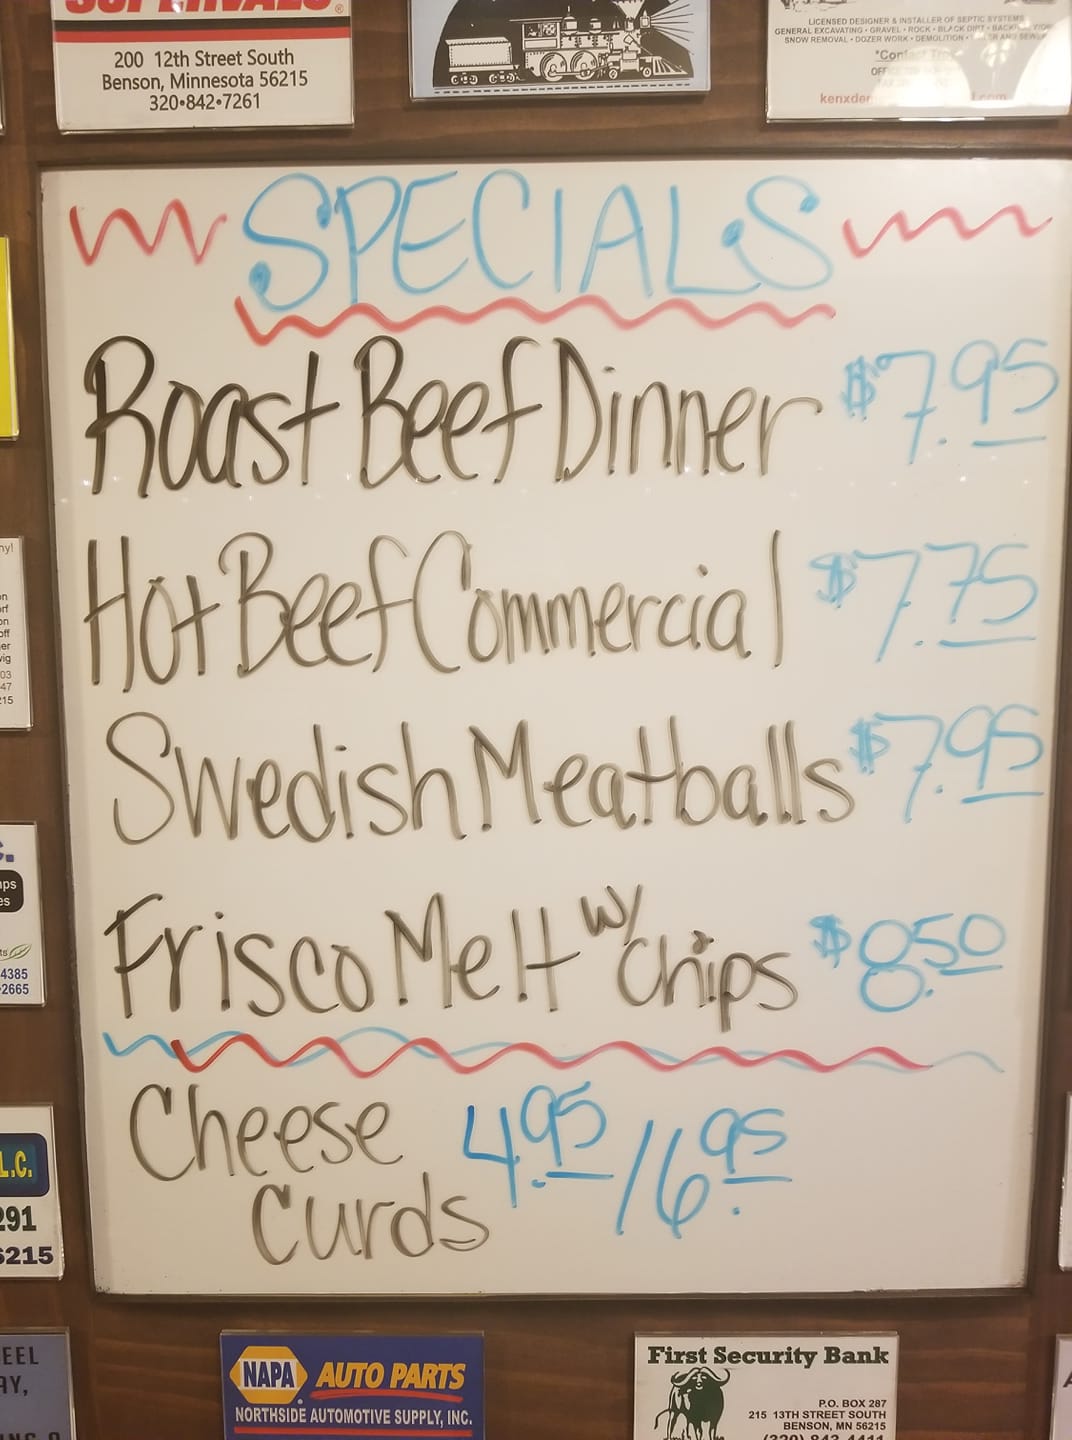 200 12th Street South
Benson, Minnesota 56215
320•842•7261
LICENSED DESIGNER & INSTALLER OF SEPTIC SYSTEMS
GENERAL EXCAVATING • GRAVEL • ROCK • BLACK DIRT •
SNOW REMOVAL • DOZER WORK • DEMOLITION •
SPECIALS
Roast Beef Dinner $7.95
Hot Beef Commercial $7.75
Swedish Meatballs $7.95
Frisco Melt w/ Chips $8.50
Cheese Curds 4.95/6.95
4385
2665
L.C.
291
6215
NAPA AUTO PARTS
NORTHSIDE AUTOMOTIVE SUPPLY, INC.
First Security Bank
P.O. BOX 287
215 13TH STREET SOUTH
BENSON, MN 56215